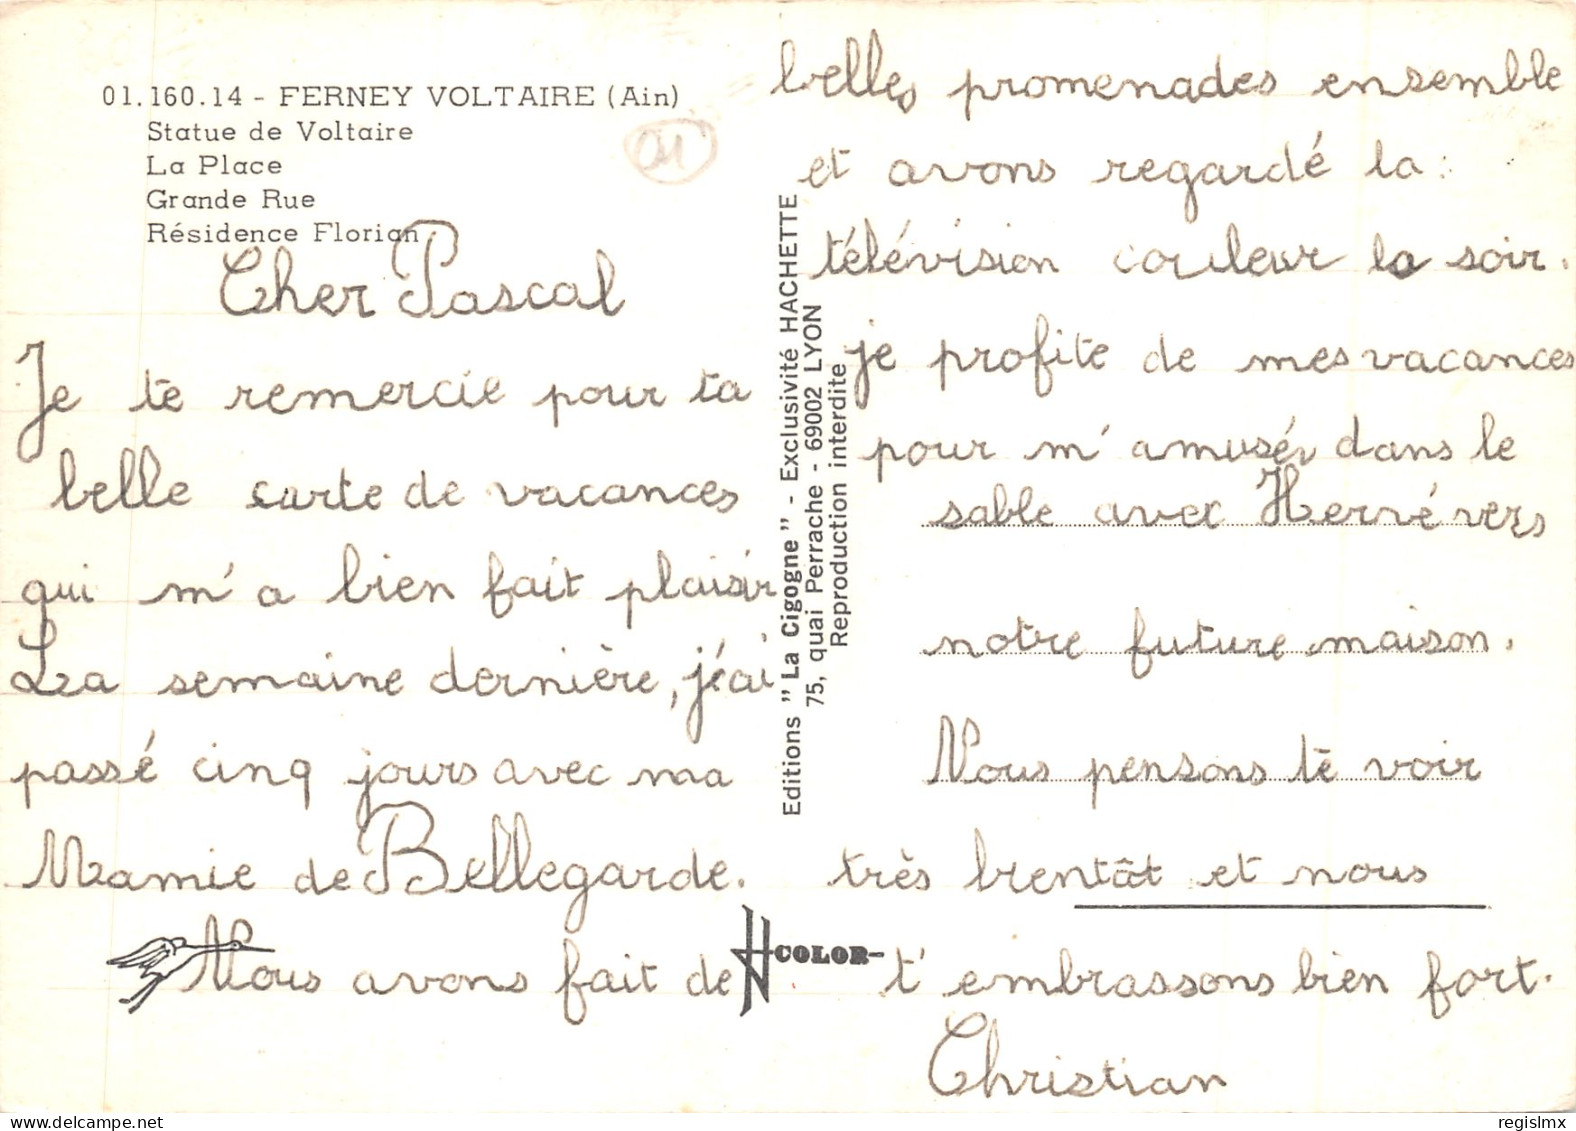 01.160.14 - FERNEY VOLTAIRE (Ain)
Statue de Voltaire
La Place
Grande Rue
Résidence Florian
01
Cher Pascal
Je te remercie pour ta
belle carte de vacances
qui m'a bien fait plaisir
La semaine dernière, j'éai
passé cinq jours avec ma
Mamie de Bellegarde.
Nous avons fait de
Editions "La Cigogne" - Exclusivité HACHETTE
75, quai Perrache - 69002 LYON
Reproduction interdite
COLOR
belles promenades ensemble
et avons regardé la
télévision couleur le soir.
je profite de mes vacances
pour m'amusér dans le
sable avec Hervé vers
notre future maison.
Nous pensons te voir
très bientât et nous
t'embrassons bien fort.
Christian
regislmx
delcampe.net